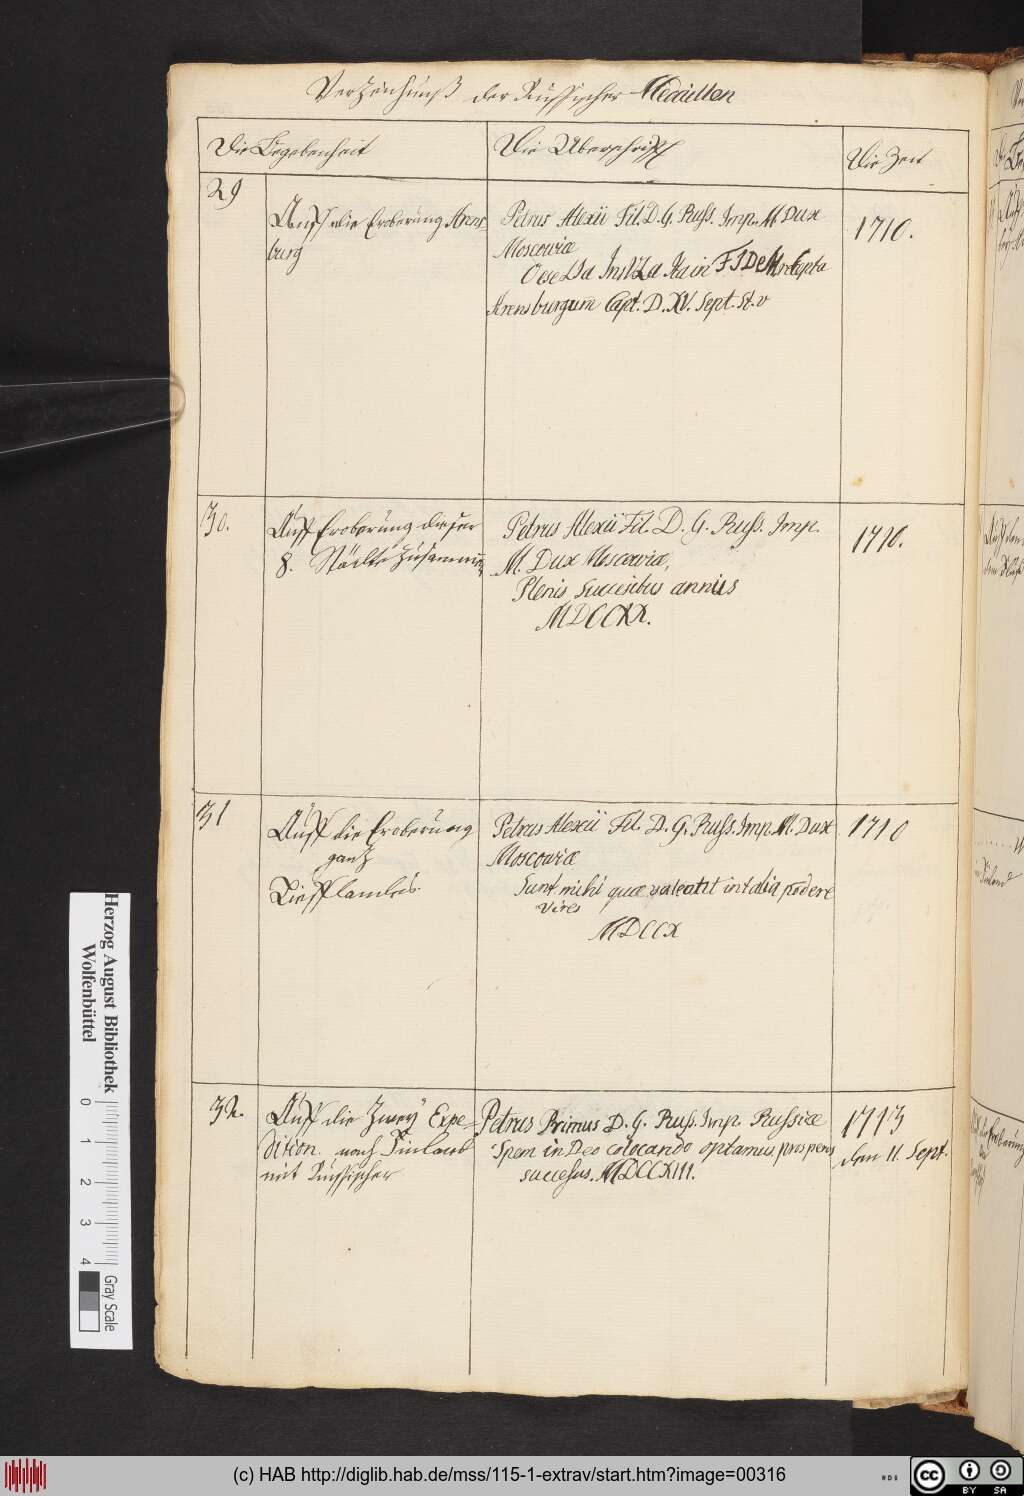 Verzeichnuß der Russischer Medaillen
Die Begebenheit
Die Uberschrifft
Die Zeit
29
Auff die Eroberung Arens
burg
Petrus Alexii Fil. D. G. Russ. Imp. M Dux
Moscoviæ
Arensburgum Capt. D. XV. Sept. St. v
1710.
30.
Auff Eroberung dieser
8. Städte zusammen
Petrus Alexii Fil. D. G. Russ. Imp.
M. Dux Moscoviæ,
Plenis Successibus annus
MDCCXX.
1710.
31
Auff die Eroberung
gantz
Liefflandes.
Petrus Alexii Fil. D. G. Russ. Imp. M. Dux
Moscoviæ
Sunt mihi quæ valeant in talia podere
vires
MDCCX
1710
32.
Auff die Zwey Expe-
dition nach Finland
mit Russischer
Petrus Primus D. G. Russ. Imp Russiæ
Spem in Deo colocando optamus prosperus
successus. MDCCXIII.
1713
den 11. Sept.
Herzog August Bibliothek
Wolfenbüttel
0 1 2 3 4
Gray Scale
(c) HAB http://diglib.hab.de/mss/115-1-extrav/start.htm?image=00316
HAB
cc BY SA